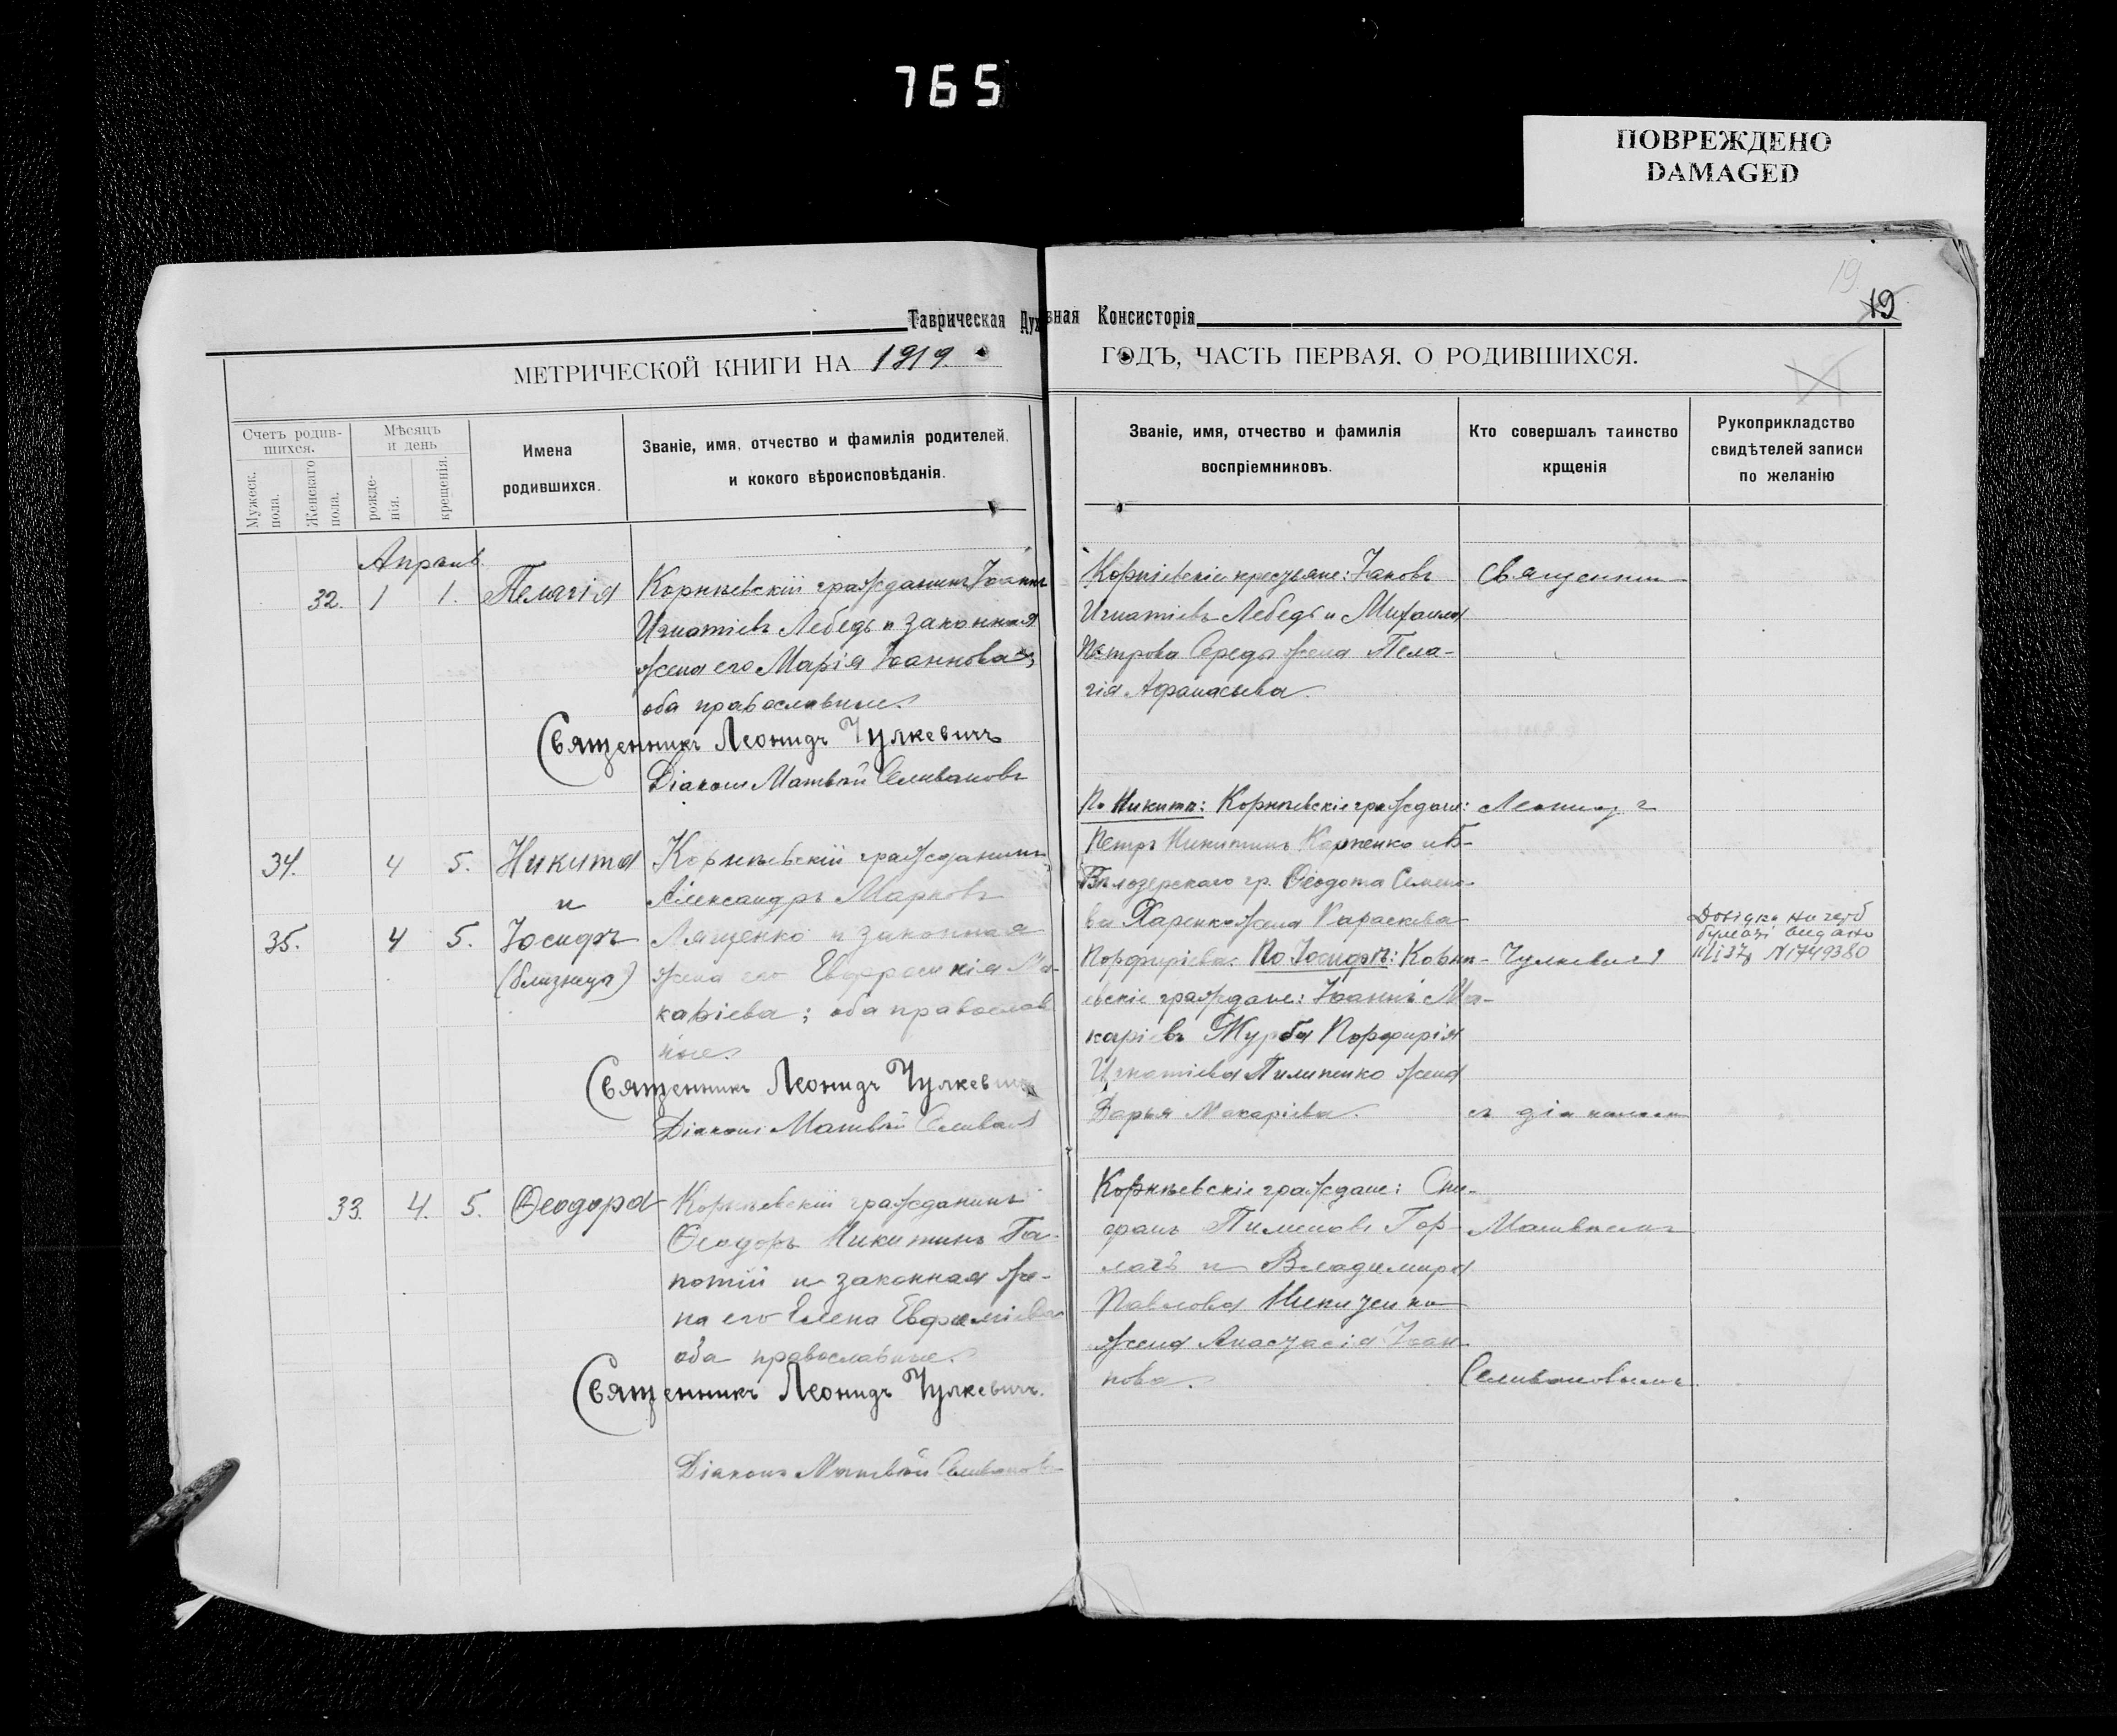 765
ПОВРЕЖДЕНО
DAMAGED
19
19
Таврическая Духовная Консисторія
МЕТРИЧЕСКОЙ КНИГИ НА 1919
ГОДЪ, ЧАСТЬ ПЕРВАЯ, О РОДИВШИХСЯ.
Счетъ родив-
шихся.
Мужеск.
пола.
Женскаго
пола.
Мѣсяцъ
и день
рожде-
нія.
крещенія.
Имена
родившихся.
Званіе, имя, отчество и фамилія родителей,
и кокого вѣроисповѣданія.
Званіе, имя, отчество и фамилія
воспріемниковъ.
Кто совершалъ таинство
крщенія
Рукоприкладство
свидѣтелей записи
по желанію
Апрѣль
32. 1 1. Пелагія
Корнѣевскій гражданинъ Іоаннъ
Игнатіевъ Лебедь и законная
жена его Марія Іоаннова;
оба православные.
Священникъ Леонидъ Чулкевичъ
Діаконъ Матвѣй Селивановъ
Корнѣевскіе крестьяне: Іаковъ
Игнатіевъ Лебедь и Михаила
Петрова Середы жена Пела-
гія Афанасьева.
Священни
34. 4 5. Никита
и
35. 4 5. Іосифъ
(близнецы)
Корнѣевскій гражданинъ
Александръ Марковъ
Лященко и законная
жена его Евфросинія Ма-
каріева; оба православ
ные.
Священникъ Леонидъ Чулкевичъ
Діаконъ Матвѣй Селивановъ
По Никитѣ: Корнѣевскіе граждане:
Петръ Никитинъ Карпенко и Б-
Бѣлозерскаго гр. Ѳеодота Семено-
ва Харенко жена Параскева
Порфиріева. По Іосифѣ: Корнѣ-
евскіе граждане: Іоаннъ Ма-
каріевъ Журба Порфирія
Игнатіева Пилипенко жена
Дарья Макаріева.
Леонидъ
Чулкевичъ
съ діакономъ
Довідка на герб
бумазі видано
№ 1749380
33. 4. 5. Ѳеодора
Корнѣевскій гражданинъ
Ѳеодоръ Никитинъ Га-
потій и законная же-
на его Елена Евфиміева
оба православные.
Священникъ Леонидъ Чулкевичъ.
Діаконъ Матвѣй Селивановъ
Корнѣевскіе граждане: Сте-
фанъ Пименовъ Гор-
лачъ и Владимира
Павлова Никитенко
жена Анастасія Іоан-
нова.
Матвѣемъ
Селивановымъ